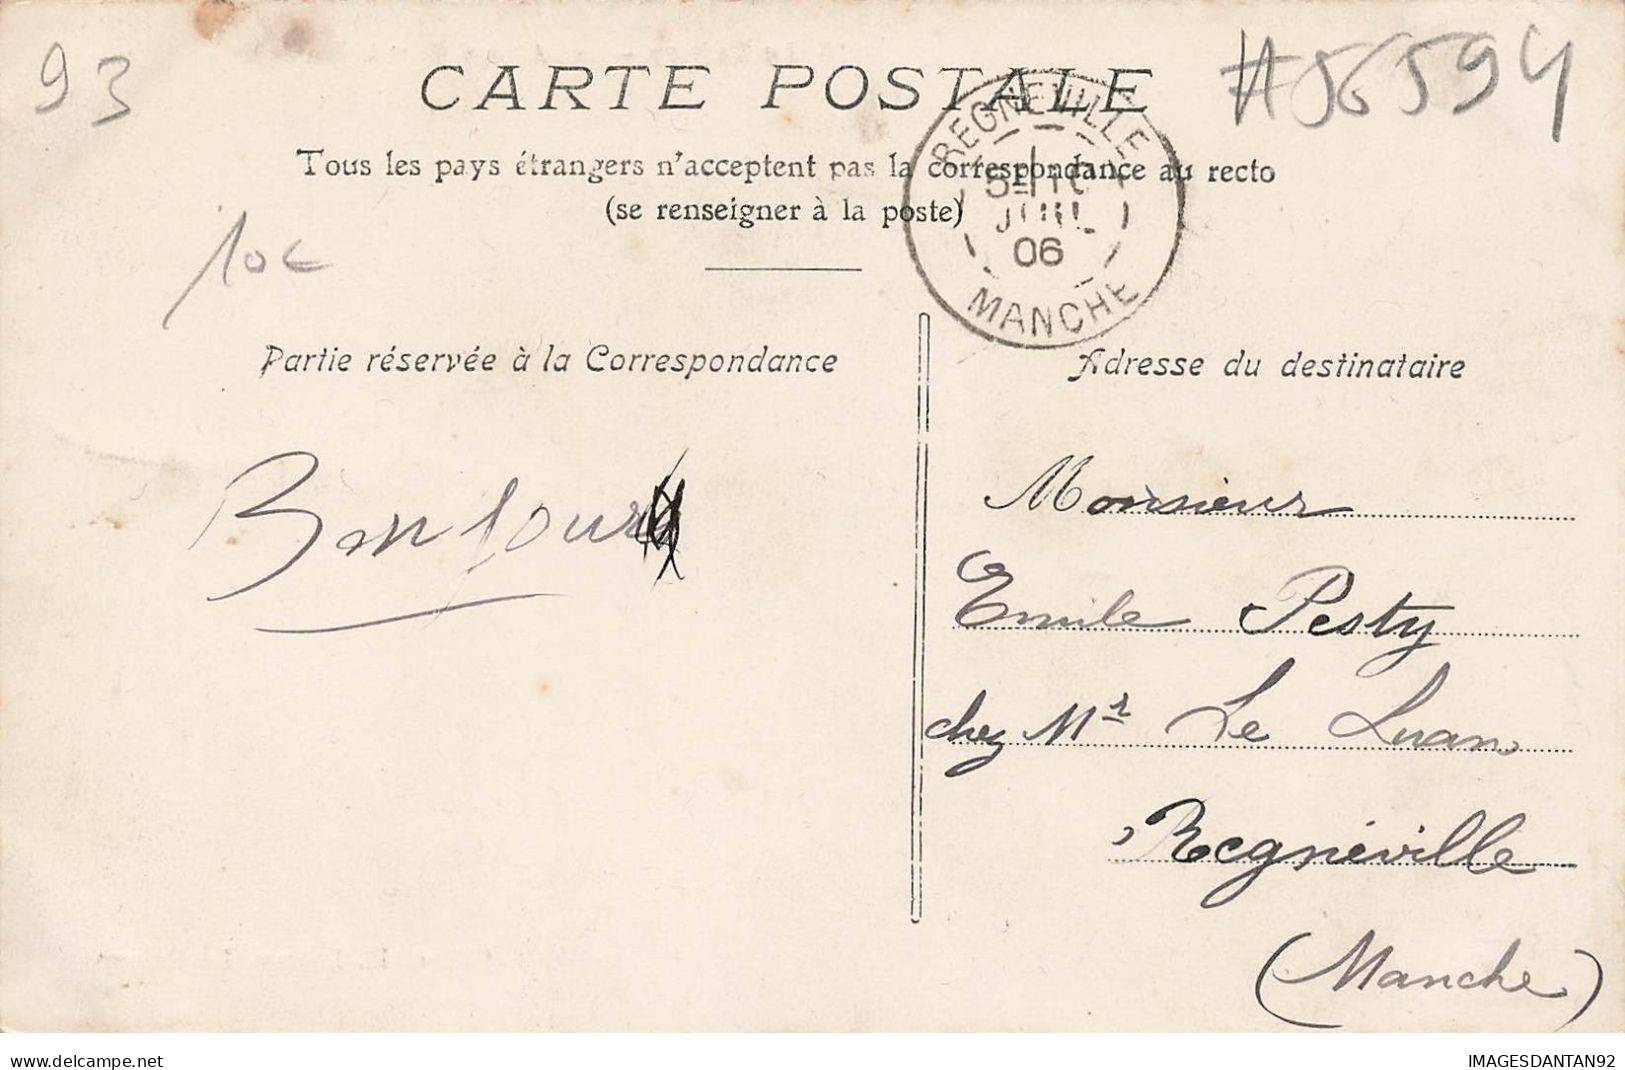 93
#56594
CARTE POSTALE
Tous les pays étrangers n'acceptent pas la correspondance au recto
(se renseigner à la poste)
REGNEVILLE
06
MANCHE
10€
Partie réservée à la Correspondance
Bonjour
Adresse du destinataire
Monsieur
Emile Pesty
chez Mr Le Luan
Regnéville
(Manche)
www.delcampe.net
IMAGESDANTAN92